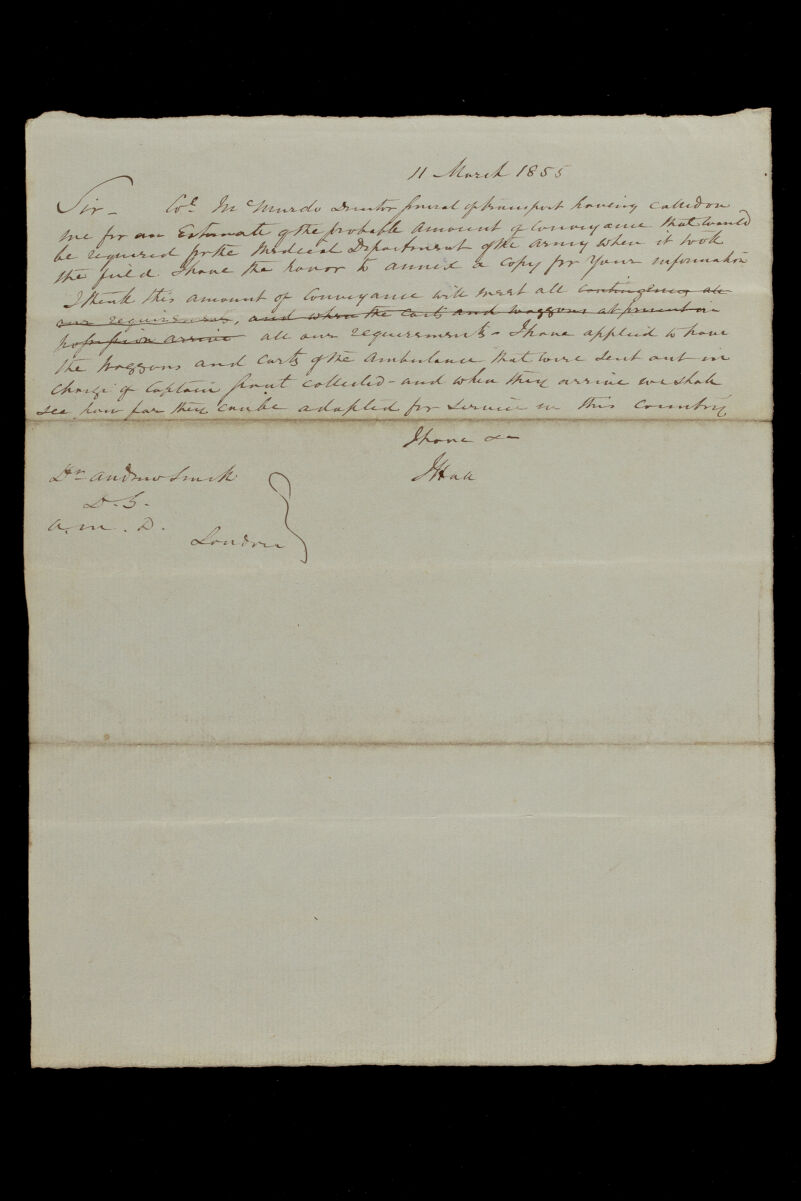 11 March 1855
Sir - Col. McMurdo Director General of transport having called on
me for an Estimate of the probable amount of Conveyance that would
be required for the Medical Department of the Army when it took
the field I have the honor to annex a copy for Your information
I think this amount of Conveyance will meet all contingency all
our requirements, and when the carts and waggons at present in
possession arrive all our requirements - I have applied to have
the Waggons and carts of the ambulance that were sent out in
charge of Captain Grant collected - and when they arrive we shall
see how far they can be adapted for service in this country
I have &c
J Hall
Dr Andrew Smith
D. G.
A. M. D.
London